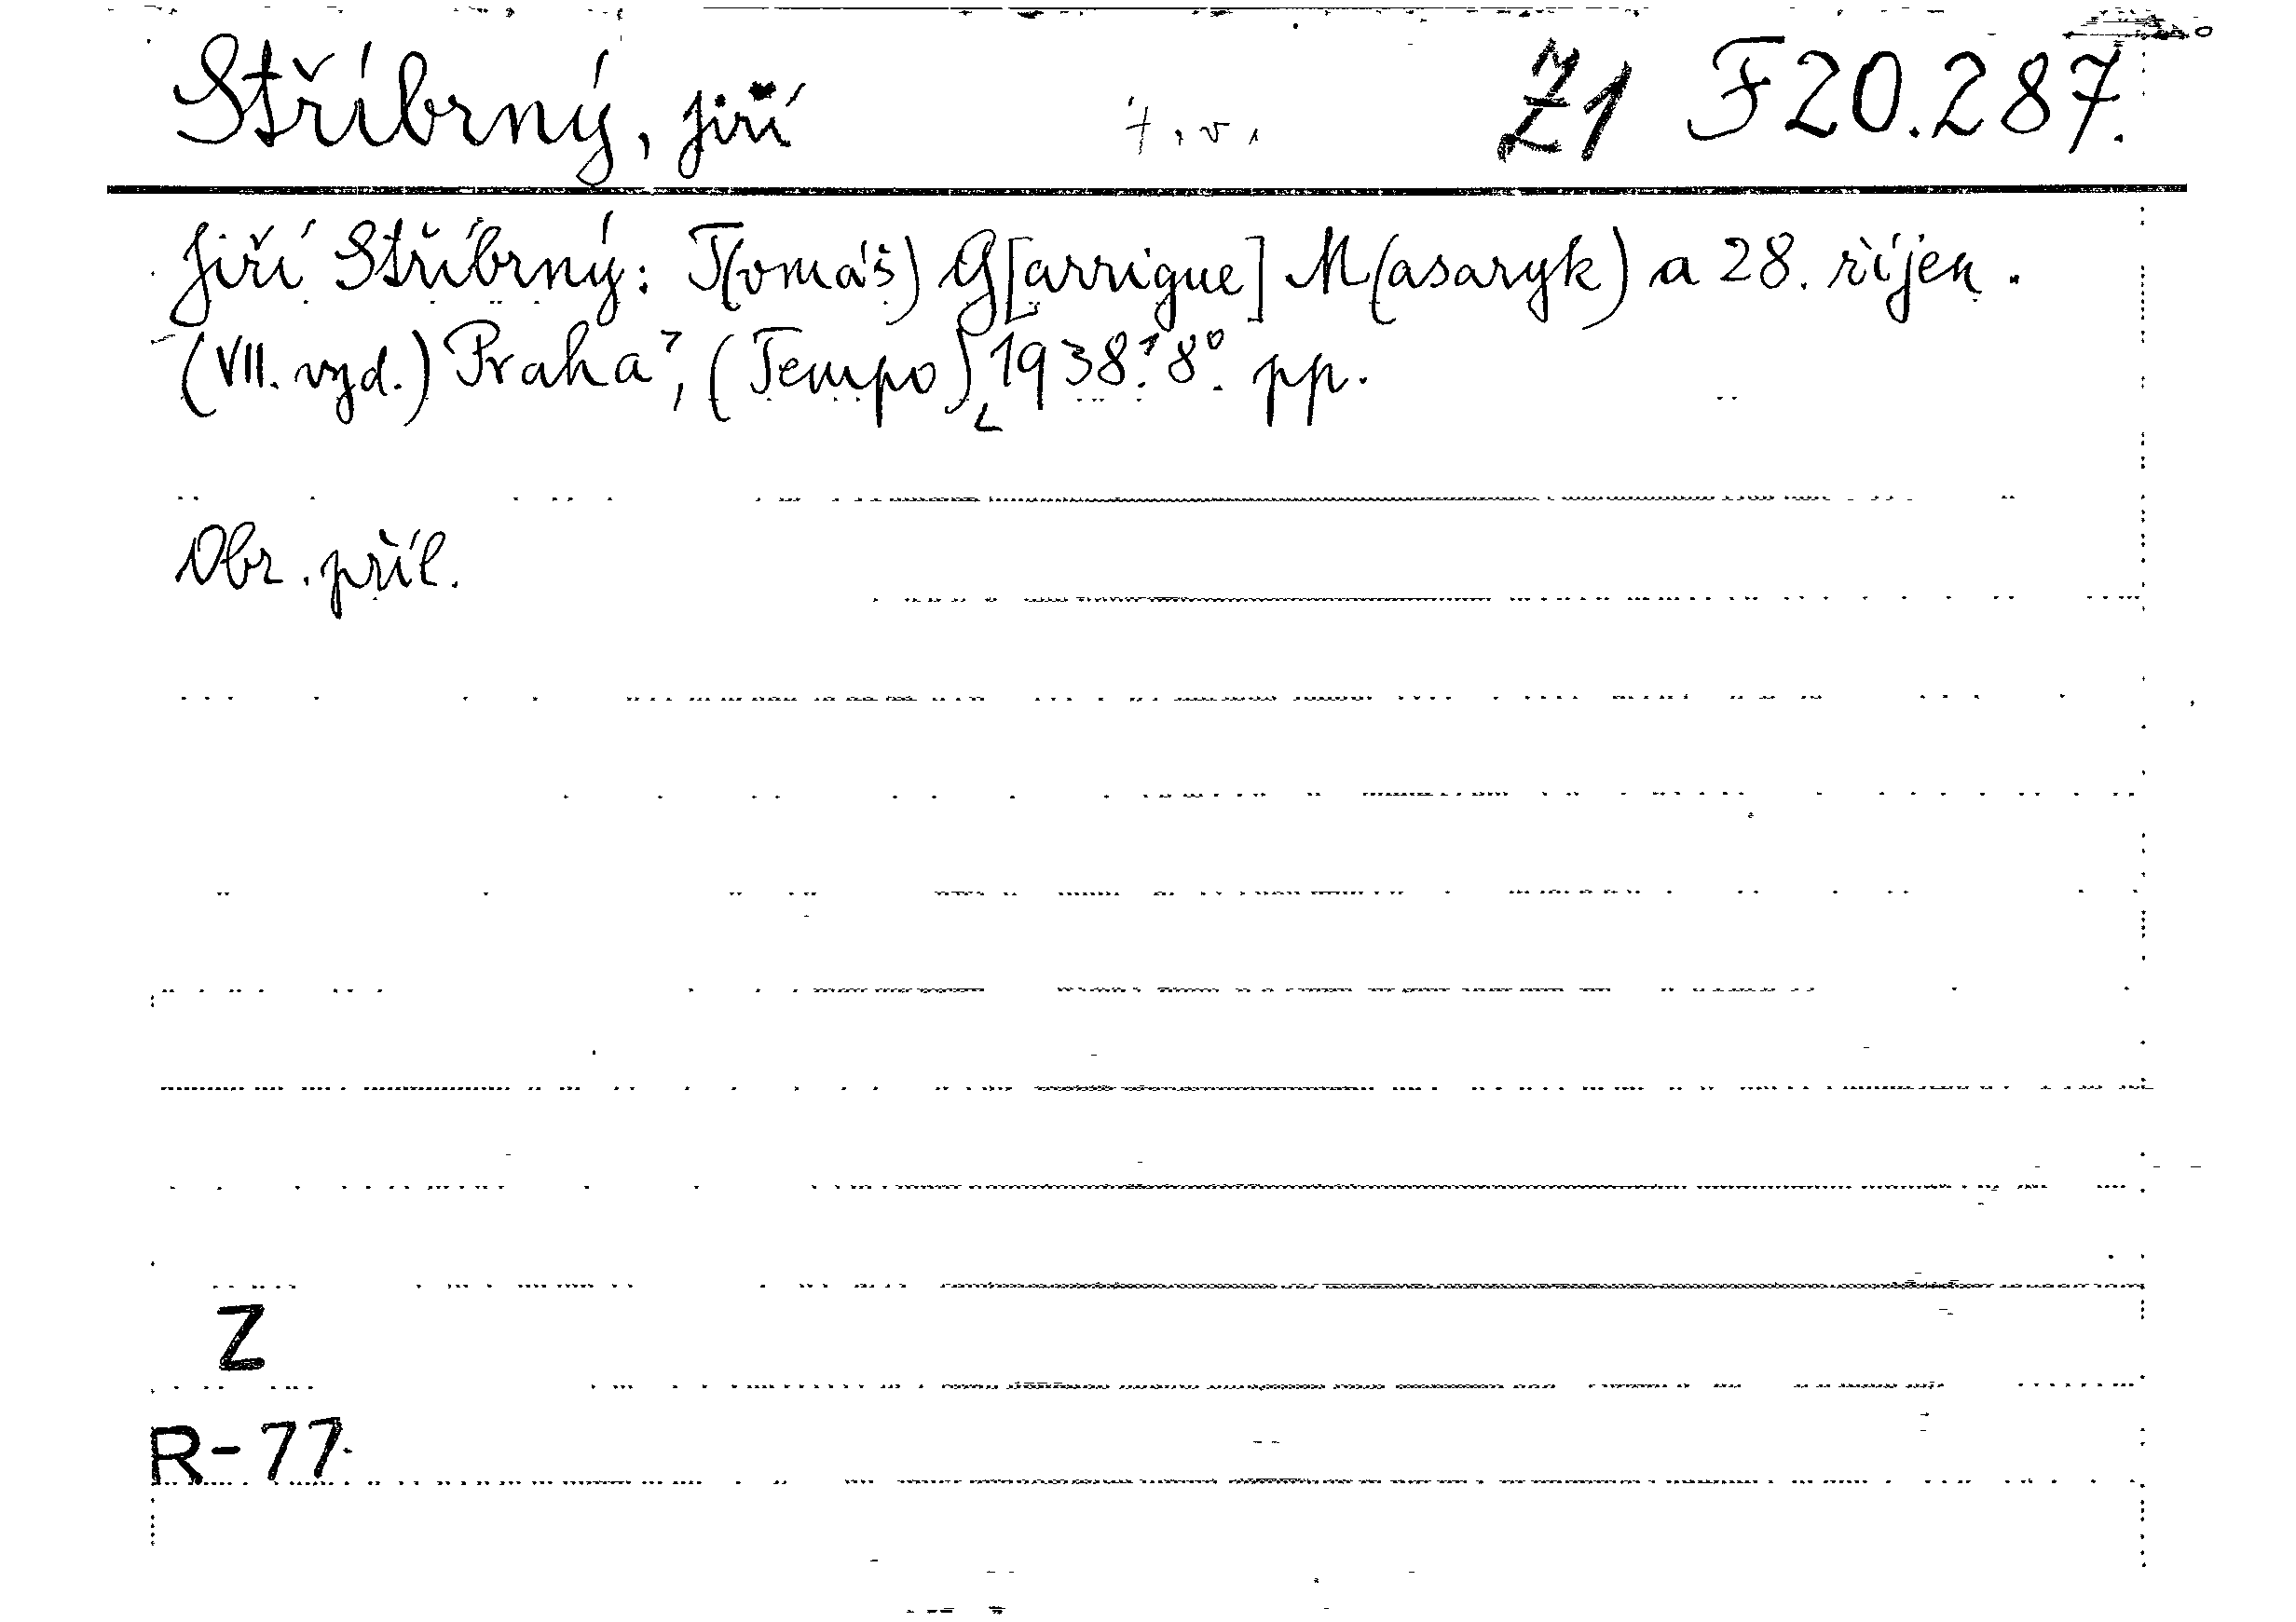 Stříbrný, Jiří t.v. Z1 F20.287.
Jiří Stříbrný: T(omáš) G[arrigue] M(asaryk) a 28. říjen.
(VII. vyd.) Praha, (Tempo), 1938. 8°. pp.
Obr. příl.
Z
R-77